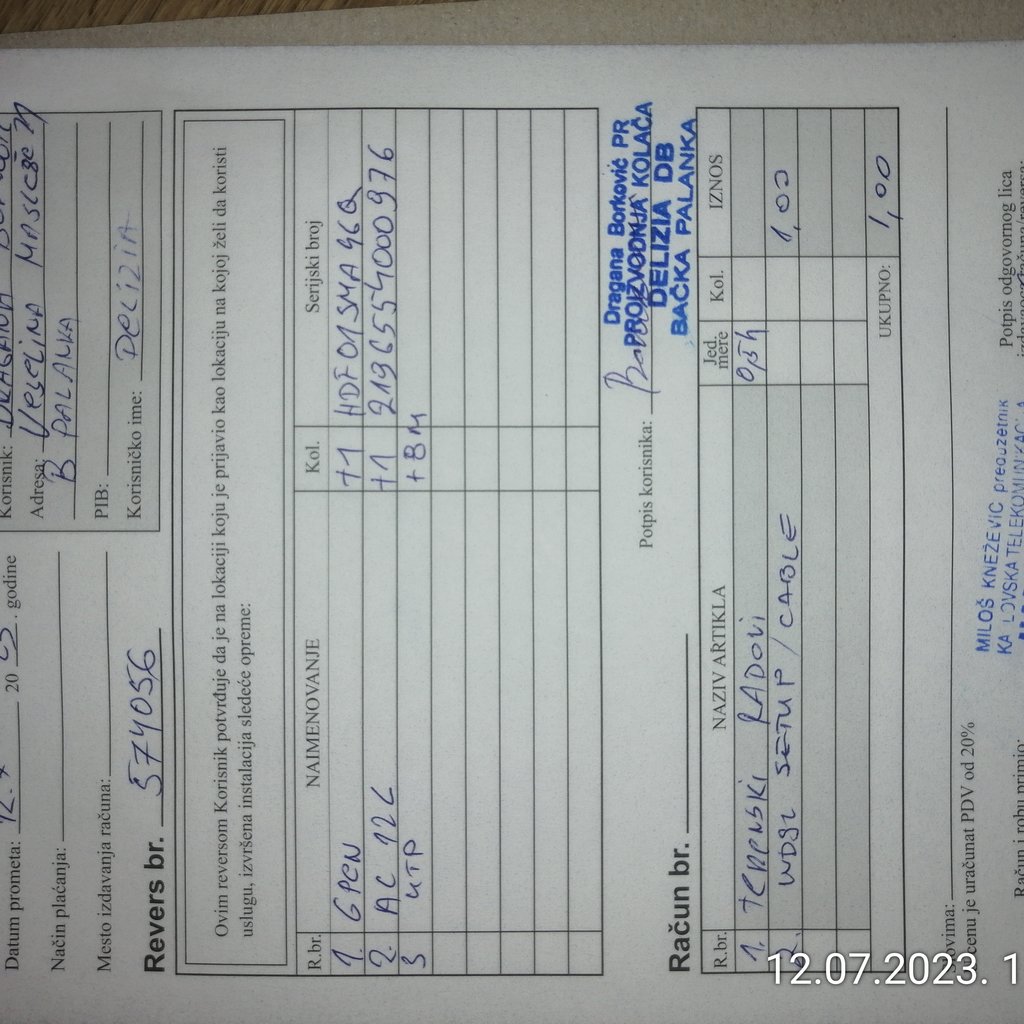 Datum prometa: 12.7 20 . godine
Način plaćanja:
Mesto izdavanja računa:
Korisnik: DRAGANA
Adresa: VESELINA MASLEŠE
B PALANKA
PIB:
Korisničko ime: DELIZIA
Revers br. 574056
Ovim reversom Korisnik potvrđuje da je na lokaciji koju je prijavio kao lokaciju na kojoj želi da koristi
uslugu, izvršena instalacija sledeće opreme:
R.br. NAIMENOVANJE Kol. Serijski broj
1. GPEN +1
2. AC 12L +1 2196554000976
3 UTP +8M
Potpis korisnika:
Dragana Borković PR
PROIZVODNJA KOLAČA
DELIZIA DB
BAČKA PALANKA
Račun br.
R.br. NAZIV ARTIKLA Jed. mere Kol. IZNOS
1. TERENSKI RADOVI 0,5h
2. SETUP / CABLE 1,00
UKUPNO: 1,00
cenu je uračunat PDV od 20%
MILOŠ KNEŽEVIĆ preduzetnik
Račun i robu primio:
Potpis odgovornog lica
12.07.2023. 1